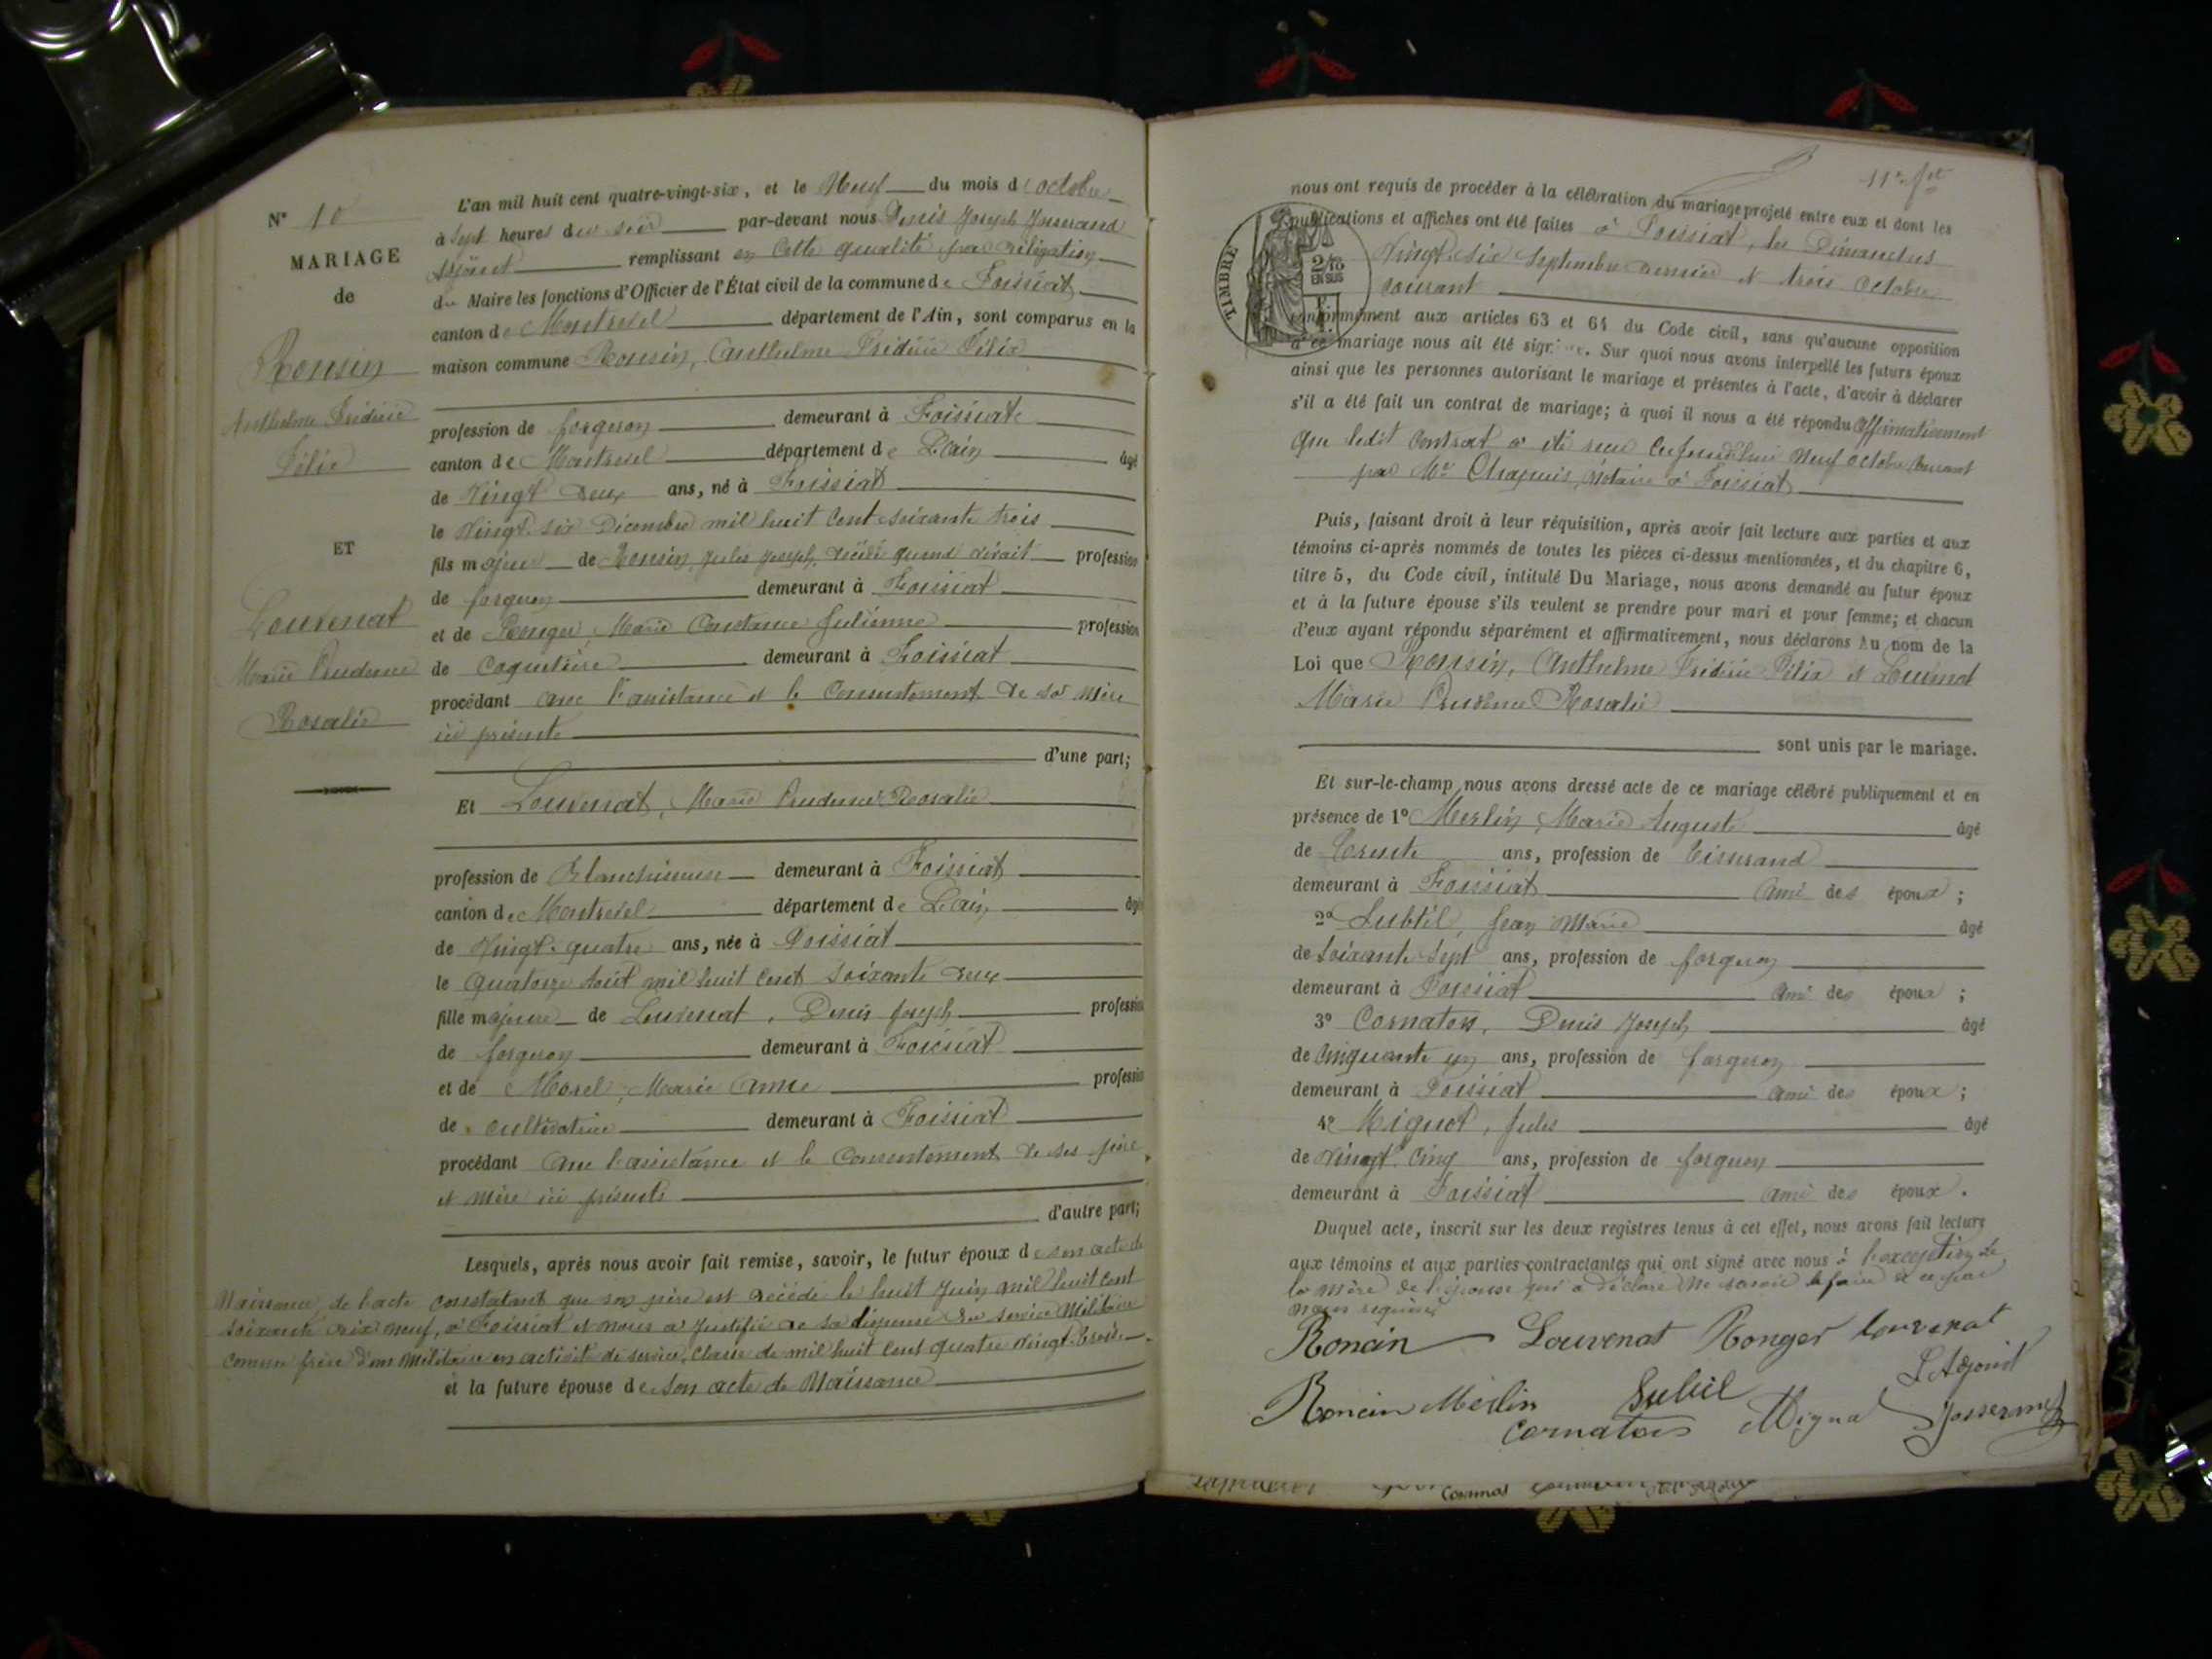 N° 10
MARIAGE
de
Ronsin
Anthelme Frédéric
Félix
ET
Louvenat
Marie Prudence
Rosalie
L'an mil huit cent quatre-vingt-six, et le Neuf du mois d'octobre
à Sept heures du soir par-devant nous Denis Joseph Josserand
Adjoint remplissant en Cette qualité par délégation
du Maire les fonctions d'Officier de l'État civil de la commune de Foissiat
canton de Montrevel département de l'Ain, sont comparus en la
maison commune Ronsin, Anthelme Frédéric Félix
profession de forgeron demeurant à Foissiat
canton de Montrevel département de L'ain âgé
de Vingt deux ans, né à Foissiat
le Vingt six Décembre mil huit Cent soixante trois
fils majeur de Ronsin, Jules Joseph, décédé quand vivait profession
de forgeron demeurant à Foissiat
et de Ronger, Marie Constance Julienne profession
de Coquetière demeurant à Foissiat
procédant avec l'assistance et le Consentement de sa mère
ici présente
d'une part;
Et Louvenat, Marie Prudence Rosalie
profession de Blanchisseuse demeurant à Foissiat
canton de Montrevel département de L'ain âgé
de Vingt-quatre ans, née à Foissiat
le Quatorze Août mil huit Cent soixante deux
fille majeure de Louvenat, Denis Joseph profession
de forgeron demeurant à Foissiat
et de Morel, Marie Anne profession
de cultivatrice demeurant à Foissiat
procédant avec l'assistance et le Consentement de ses père
et mère ici présents
d'autre part;
Lesquels, après nous avoir fait remise, savoir, le futur époux de son acte de
Naissance, de l'acte constatant que son père est décédé le huit Juin mil huit cent
soixante dix neuf, à Foissiat et nous a Justifié de sa dispense du service Militaire
Comme frère d'un Militaire en activité de service, Classe de mil huit Cent Quatre Vingt-trois
et la future épouse de son acte de Naissance
11e ft
nous ont requis de procéder à la célébration du mariage projeté entre eux et dont les
publications et affiches ont été faites à Foissiat, les Dimanches
Vingt-six Septembre dernier et trois Octobre
courant
TIMBRE
2/10
EN SUS
conformément aux articles 63 et 64 du Code civil, sans qu'aucune opposition
à ce mariage nous ait été signifiée. Sur quoi nous avons interpellé les futurs époux
ainsi que les personnes autorisant le mariage et présentes à l'acte, d'avoir à déclarer
s'il a été fait un contrat de mariage; à quoi il nous a été répondu Affirmativement
Que ledit Contrat a été reçu Cejourd'hui Neuf octobre Courant
par Me Chapuis, Notaire à Foissiat
Puis, faisant droit à leur réquisition, après avoir fait lecture aux parties et aux
témoins ci-après nommés de toutes les pièces ci-dessus mentionnées, et du chapitre 6,
titre 5, du Code civil, intitulé Du Mariage, nous avons demandé au futur époux
et à la future épouse s'ils veulent se prendre pour mari et pour femme; et chacun
d'eux ayant répondu séparément et affirmativement, nous déclarons Au nom de la
Loi que Ronsin, Anthelme Frédéric Félix et Louvenat
Marie Prudence Rosalie
sont unis par le mariage.
Et sur-le-champ nous avons dressé acte de ce mariage célébré publiquement et en
présence de 1° Merlin, Marie Auguste âgé
de Trente ans, profession de Tisserand
demeurant à Foissiat ami des époux;
2° Subtil, Jean Marie âgé
de Soixante Sept ans, profession de forgeron
demeurant à Foissiat ami des époux;
3° Cornaton, Denis Joseph âgé
de Cinquante un ans, profession de forgeron
demeurant à Foissiat ami des époux;
4° Mignot, Jules âgé
de Vingt Cinq ans, profession de forgeron
demeurant à Foissiat ami des époux.
Duquel acte, inscrit sur les deux registres tenus à cet effet, nous avons fait lecture
aux témoins et aux parties contractantes qui ont signé avec nous à l'exception de
la mère de l'épouse qui a déclaré Ne savoir le faire de ce par
nous requise
Roncin Louvenat Ronger Louvenat
L'Adjoint
Roncin Merlin Subtil
Cornaton Mignot Josserand